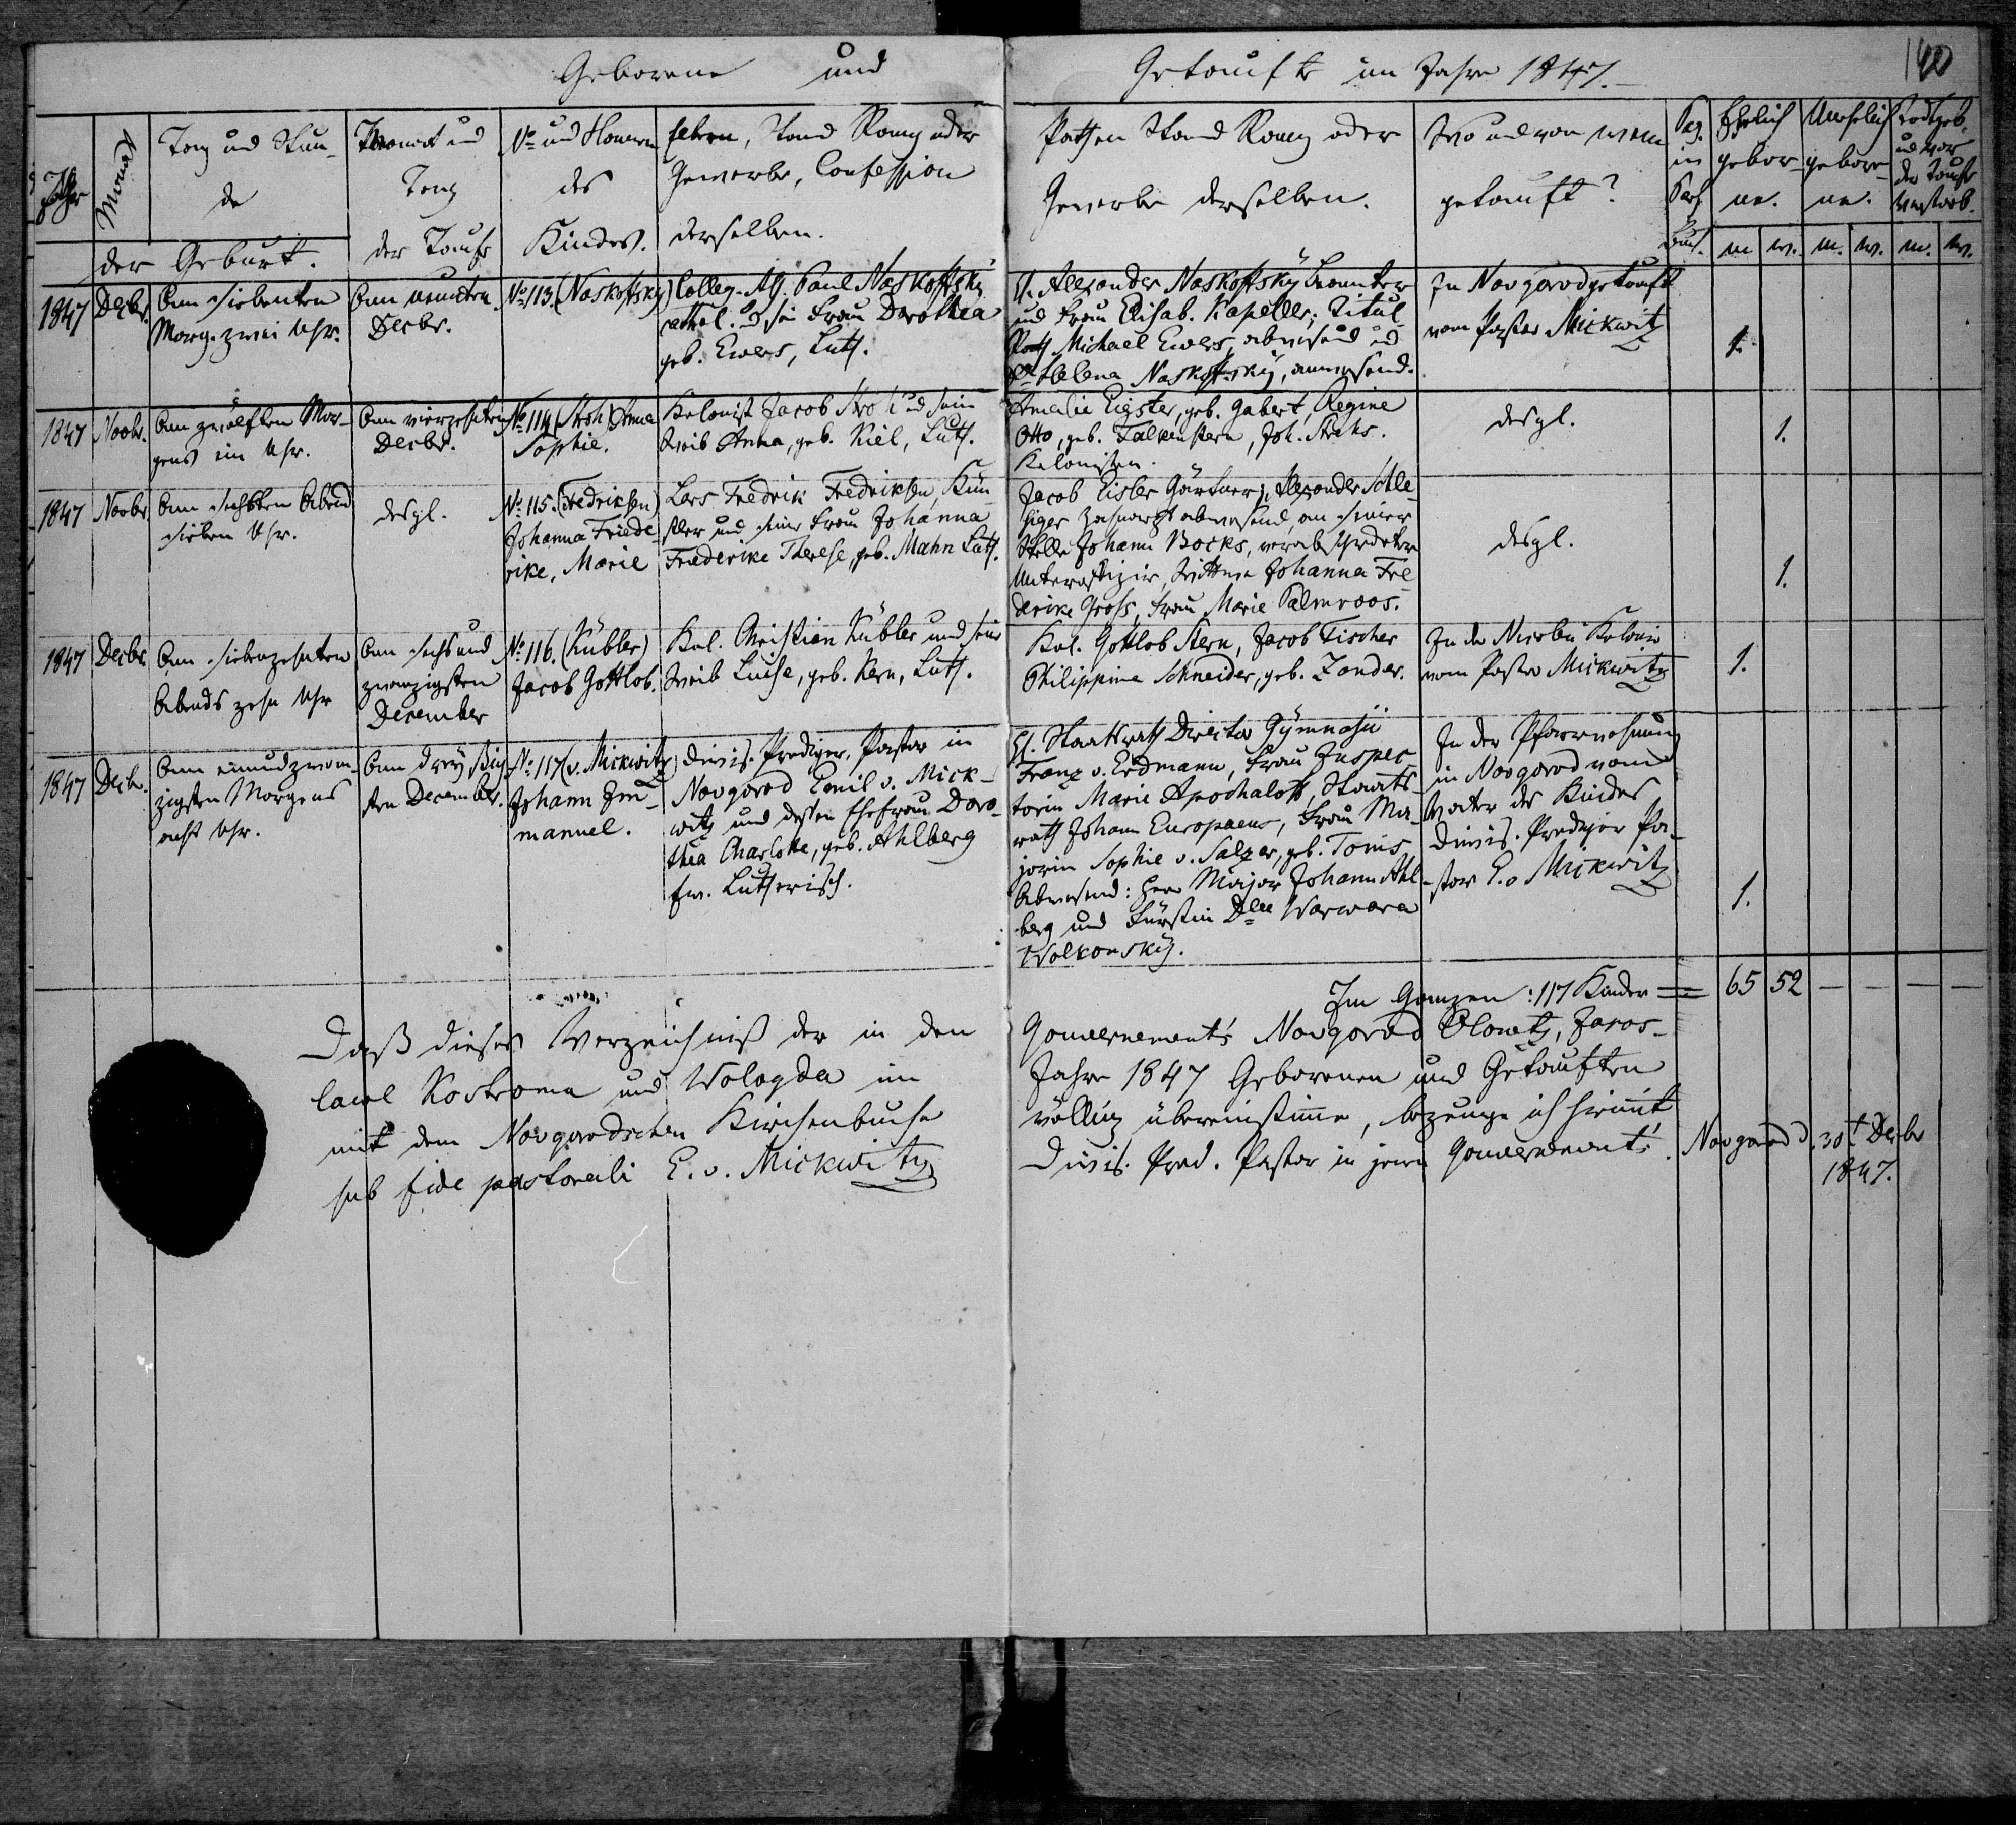 Geborene und
Getaufte im Jahre 1847.
140
Jahr
Monat
Tag und Stun-
de
der Geburt.
Monat und
Tag
der Taufe
No und Namen
des
Kindes.
Eltern, Stand Rang oder
Gewerbe, Confession
derselben.
Pathen Stand Rang oder
Gewerbe derselben.
Wo und von wem
getauft?
Pag.
im
Pers.
Buch.
Ehelich
gebor-
ne.
Unehelich
gebore-
ne.
Todtgeb.
und vor
der Taufe
verstorb.
m w. m. w. m. w.
1847 Decbr.
Am siebenten
Morg. zwei Uhr.
Am neunten
Decbr.
No 113. (Naskoffsky)
Colleg. Ass. Paul Naskoffsky
cathol. und sein Frau Dorothea
geb. Ewers, Luth.
Alexander Naskoffsky Beamter
und Frau Elisab. Kapeller; Titul.
Rath Michael Ewers, abwesend und
Helena Naskoffsky, anwesend.
In Novgorod getauft
vom Pastor Mickwitz
1.
1847 Novbr.
Am zwölften Mor-
gens ein Uhr.
Am vierzehnten
Decbr.
No 114 (Stroh) Anna
Sophie.
Kolonist Jacob Stroh und sein
Weib Anna, geb. Kiel, Luth.
Amalie Eigster, geb. Gabert, Regine
Otto, geb. Falkenstern, Joh. Strohs.
Kolonisten.
desgl.
1.
1847 Novbr.
Am sechsten Abend
sieben Uhr.
desgl.
No 115. (Fredriksen)
Johanna Friede
rike, Marie
Lars Fredrik Fredriksen, Kün-
stler und seine Frau Johanna
Friederike Therese, geb. Mahn Luth.
Jacob Eisler Gärtner, Alexander Schle-
siger Zahnarzt abwesend, an seiner
Stelle Johann Bocks, verabschiedeter
Unteroffizir, Wittwe Johanna Fre
derike Gross, Frau Marie Palmroos.
desgl.
1.
1847 Decbr.
Am siebenzehnten
Abends zehn Uhr
Am sechsund
zwanzigsten
December
No 116. (Kübler)
Jacob Gottlob.
Kol. Christian Kübler und sein
Weib Luise, geb. Kern, Luth.
Kol. Gottlob Stern, Jacob Fischer
Philippine Schneider, geb. Zonder.
In der Kolonie
vom Pastor Mickwitz
1.
1847 Decb.
Am einundzwan-
zigsten Morgens
acht Uhr.
Am dreyßig
sten December.
No 117 (v. Mickwitz)
Johann Im-
manuel.
Divis. Prediger, Pastor in
Novgorod Emil v. Mick-
witz und dessen Ehefrau Doro-
thea Charlotte, geb. Ahlberg
Ev. Lutherisch.
St. Staatsrath Director Gymnasii
Franz v. Erdmann, Frau Inspec-
torin Marie Apochaloff, Staats-
rath Johann Europaeus, Frau Ma-
jorin Sophie v. Salzer, geb. Tonis
Abwesend: Herr Major Johann Ahl
berg und Fürstin Dlle Warwara
Wolkonsky.
In der Pfarrwohnung
in Novgorod vom
Vater des Kindes
Divis. Prediger Pa-
stor E. v Mickwitz
1.
Im Ganzen: 117 Kinder = 65 52 — — — —
Daß dieses Verzeichniß der in den
Gouvernements Novgorod Olonetz, Jaros-
lawl Kostroma und Wologda im
Jahre 1847 Geborenen und Getauften
mit dem Novgorodschen Kirchenbuche
völlig übereinstimme, bezeuge ich hiermit
sub fide pastorali E. v. Mickwitz
Divis. Pred. Pastor in jenen Gouvernements. Novgorod d. 30t Decbr
1847.